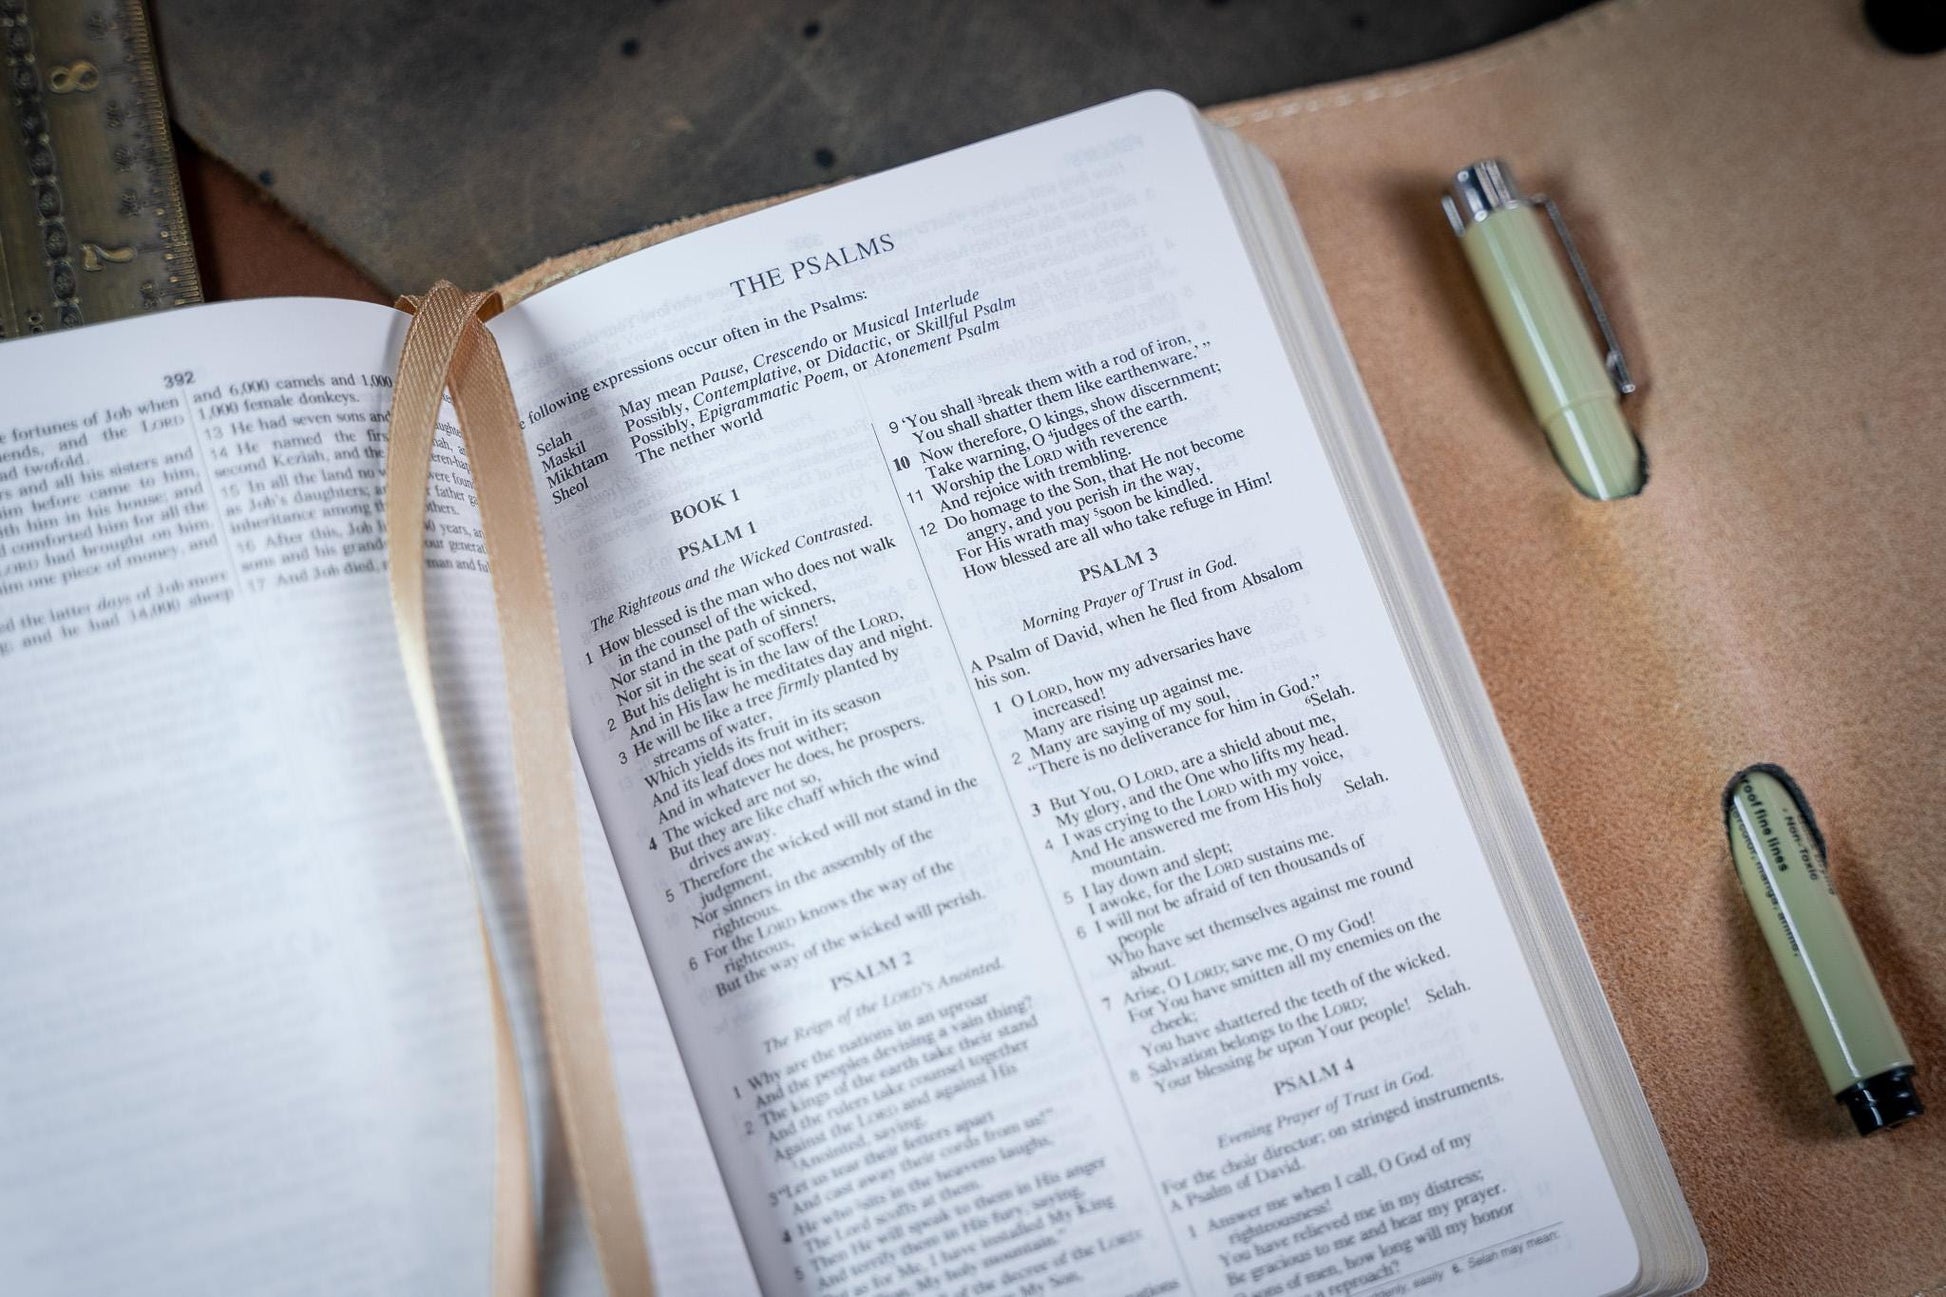 8
7
392
e fortunes of Job when
ends, and the LORD
ad twofold.
rs and all his sisters and
im before came to him,
th him in his house; and
d comforted him for all the
LORD had brought on him.
him one piece of money, and
ed the latter days of Job more
; and he had 14,000 sheep
and 6,000 camels and 1,000
1,000 female donkeys.
13 He had seven sons and
14 He named the firs
second Keziah, and the
15 In all the land no w
as Job's daughters; a
inheritance among th
16 After this, Job l
sons and his grands
17 And Job died,
THE PSALMS
e following expressions occur often in the Psalms:
Selah May mean Pause, Crescendo or Musical Interlude
Maskil Possibly, Contemplative, or Didactic, or Skillful Psalm
Mikhtam Possibly, Epigrammatic Poem, or Atonement Psalm
Sheol The nether world
BOOK 1
PSALM 1
The Righteous and the Wicked Contrasted.
1 How blessed is the man who does not walk
in the counsel of the wicked,
Nor stand in the path of sinners,
Nor sit in the seat of scoffers!
2 But his delight is in the law of the LORD,
And in His law he meditates day and night.
3 He will be like a tree firmly planted by
streams of water,
Which yields its fruit in its season
And its leaf does not wither;
And in whatever he does, he prospers.
4 The wicked are not so,
But they are like chaff which the wind
drives away.
5 Therefore the wicked will not stand in the
judgment,
Nor sinners in the assembly of the
righteous.
6 For the LORD knows the way of the
righteous,
But the way of the wicked will perish.
PSALM 2
The Reign of the LORD'S Anointed.
1 Why are the nations in an uproar
And the peoples devising a vain thing?
2 The kings of the earth take their stand
And the rulers take counsel together
Against the LORD and against His
Anointed, saying,
3 "Let us tear their fetters apart
And cast away their cords from us!"
4 He who sits in the heavens laughs,
The Lord scoffs at them.
5 Then He will speak to them in His anger
And terrify them in His fury, saying,
as for Me, I have installed My King
My holy mountain."
of the decree of the LORD:
My Son,
9 'You shall ³break them with a rod of iron,
You shall shatter them like earthenware.' "
10 Now therefore, O kings, show discernment;
Take warning, O ⁴judges of the earth.
11 Worship the LORD with reverence
And rejoice with trembling.
12 Do homage to the Son, that He not become
angry, and you perish in the way,
For His wrath may ⁵soon be kindled.
How blessed are all who take refuge in Him!
PSALM 3
Morning Prayer of Trust in God.
A Psalm of David, when he fled from Absalom
his son.
1 O LORD, how my adversaries have
increased!
Many are rising up against me.
2 Many are saying of my soul,
"There is no deliverance for him in God."
⁶Selah.
3 But You, O LORD, are a shield about me,
My glory, and the One who lifts my head.
4 I was crying to the LORD with my voice,
And He answered me from His holy
mountain. Selah.
5 I lay down and slept;
I awoke, for the LORD sustains me.
6 I will not be afraid of ten thousands of
people
Who have set themselves against me round
about.
7 Arise, O LORD; save me, O my God!
For You have smitten all my enemies on the
cheek;
You have shattered the teeth of the wicked.
8 Salvation belongs to the LORD;
Your blessing be upon Your people! Selah.
PSALM 4
Evening Prayer of Trust in God.
For the choir director; on stringed instruments.
A Psalm of David.
1 Answer me when I call, O God of my
righteousness!
You have relieved me in my distress;
Be gracious to me and hear my prayer.
O sons of men, how long will my honor
a reproach?
easily 6. Selah may mean:
oof fine lines
Non-Toxic
manga, anime,